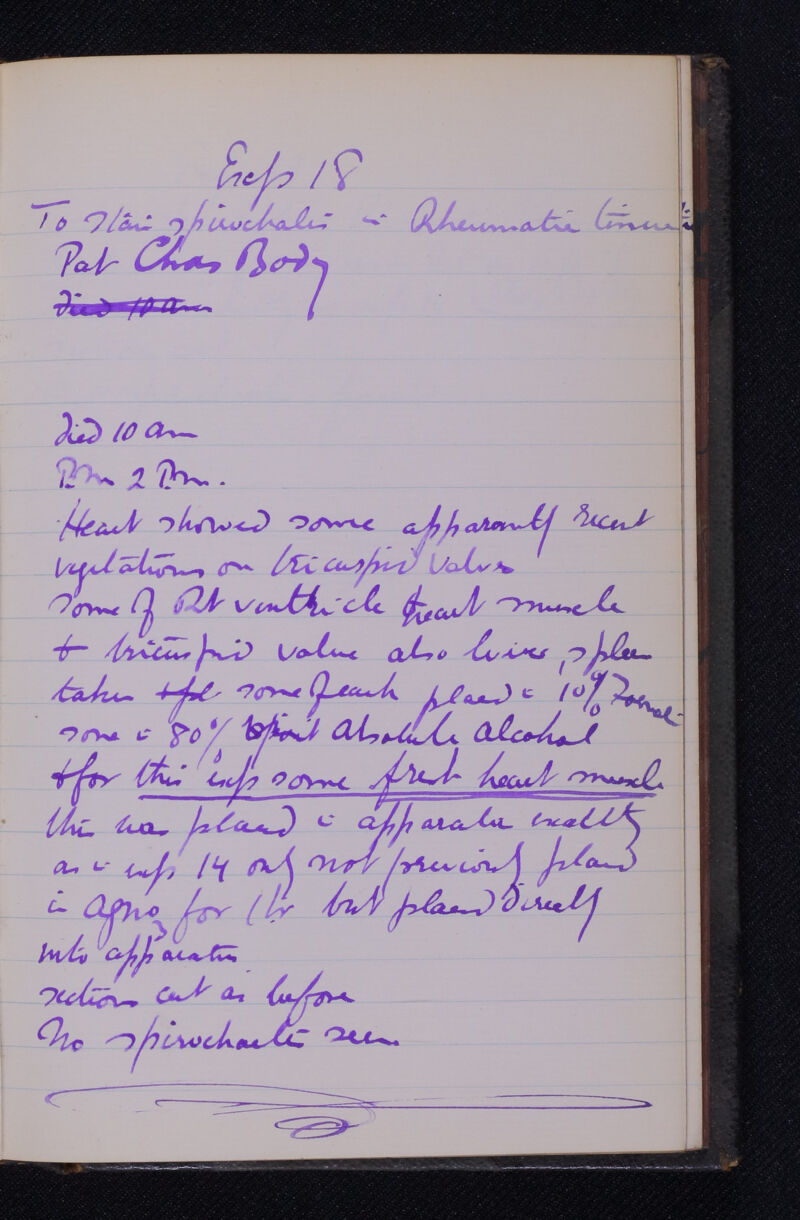 Exp 18
To stain spirochaetes in Rheumatic tissue
Pat Chas Body
died 10 am
died 10 am
P.m 2 P.m.
Heart showed some apparently recent
vegetations on tricuspid valve
some of Rt ventricle heart muscle
+ tricuspid valve also liver, spleen
taken some of each placed in 10% Formal
some in 80% absolute alcohol
+ for this exp some fresh heart muscle
this was placed in apparatus exactly
as in exp 14 only not previously placed
in AgNO3 for 1 hr but placed directly
into apparatus
sections cut as before
No spirochaetes seen